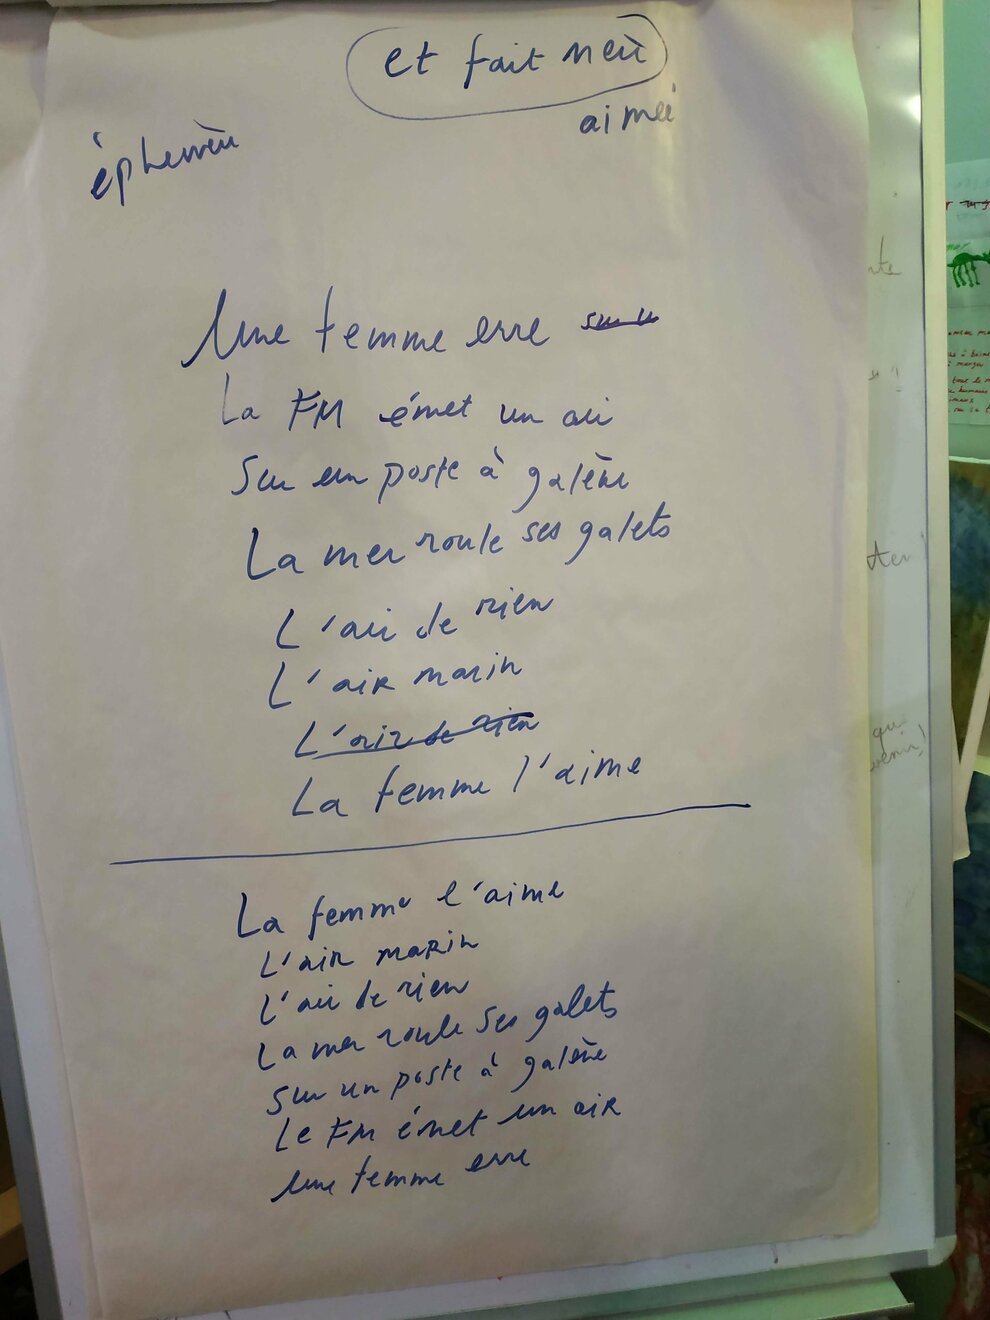 et fait mère
aimée
éphémère
Une femme erre sur u
La FM émet un air
Sur un poste à galène
La mer roule ses galets
L'air de rien
L'air marin
L'air de rien
La femme l'aime
La femme l'aime
L'air marin
L'air de rien
La mer roule ses galets
sur un poste à galène
Le FM émet un air
Une femme erre